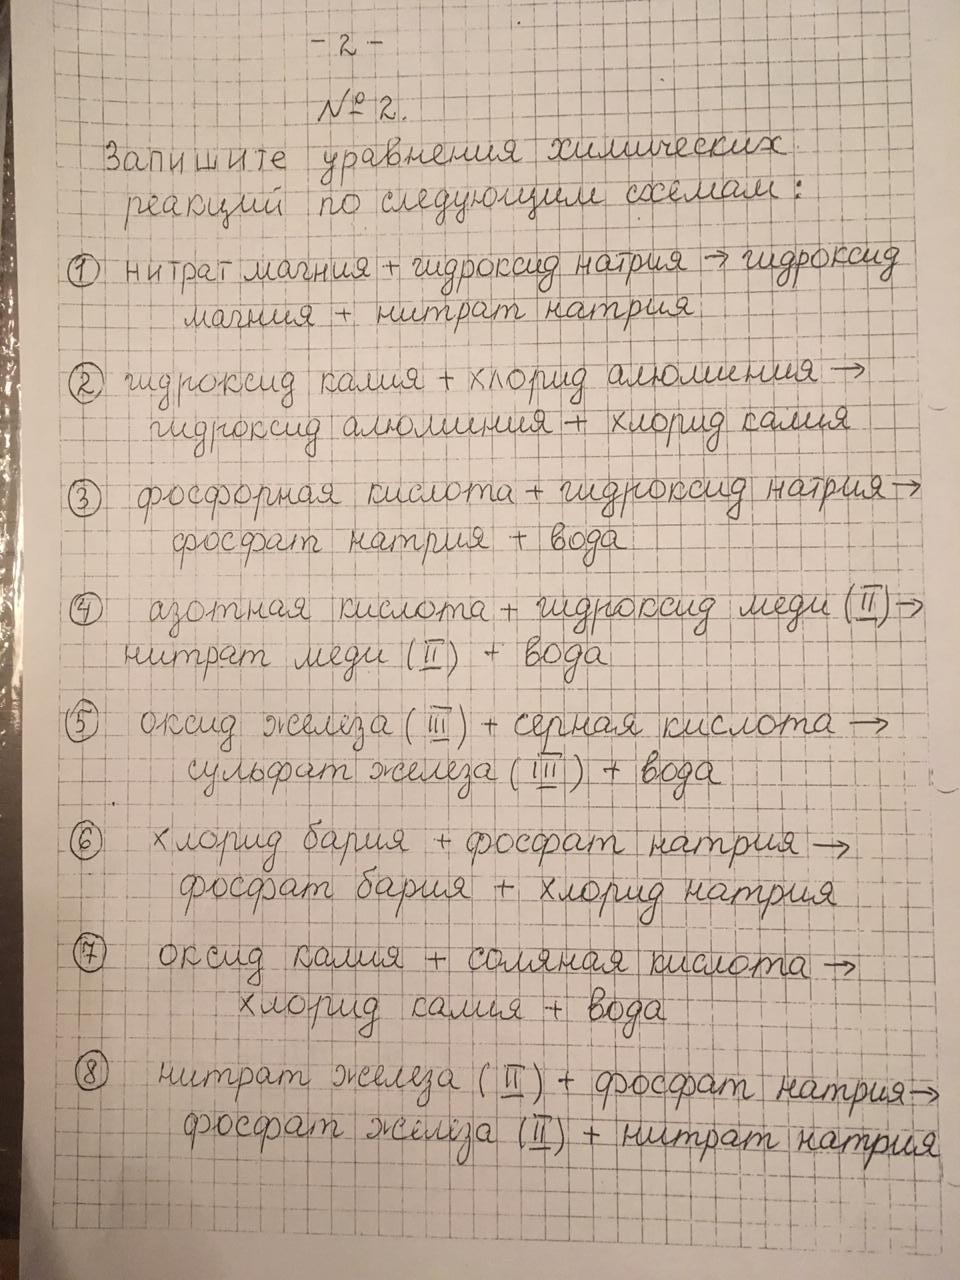 - 2 -
№ 2.
Запишите уравнения химических
реакций по следующим схемам:
① нитрат магния + гидроксид натрия → гидроксид
магния + нитрат натрия
② гидроксид калия + хлорид алюминия →
гидроксид алюминия + хлорид калия
③ фосфорная кислота + гидроксид натрия →
фосфат натрия + вода
④ азотная кислота + гидроксид меди (II) →
нитрат меди (II) + вода
⑤ оксид железа (III) + серная кислота →
сульфат железа (III) + вода
⑥ хлорид бария + фосфат натрия →
фосфат бария + хлорид натрия
⑦ оксид калия + соляная кислота →
хлорид калия + вода
⑧ нитрат железа (II) + фосфат натрия →
фосфат железа (II) + нитрат натрия